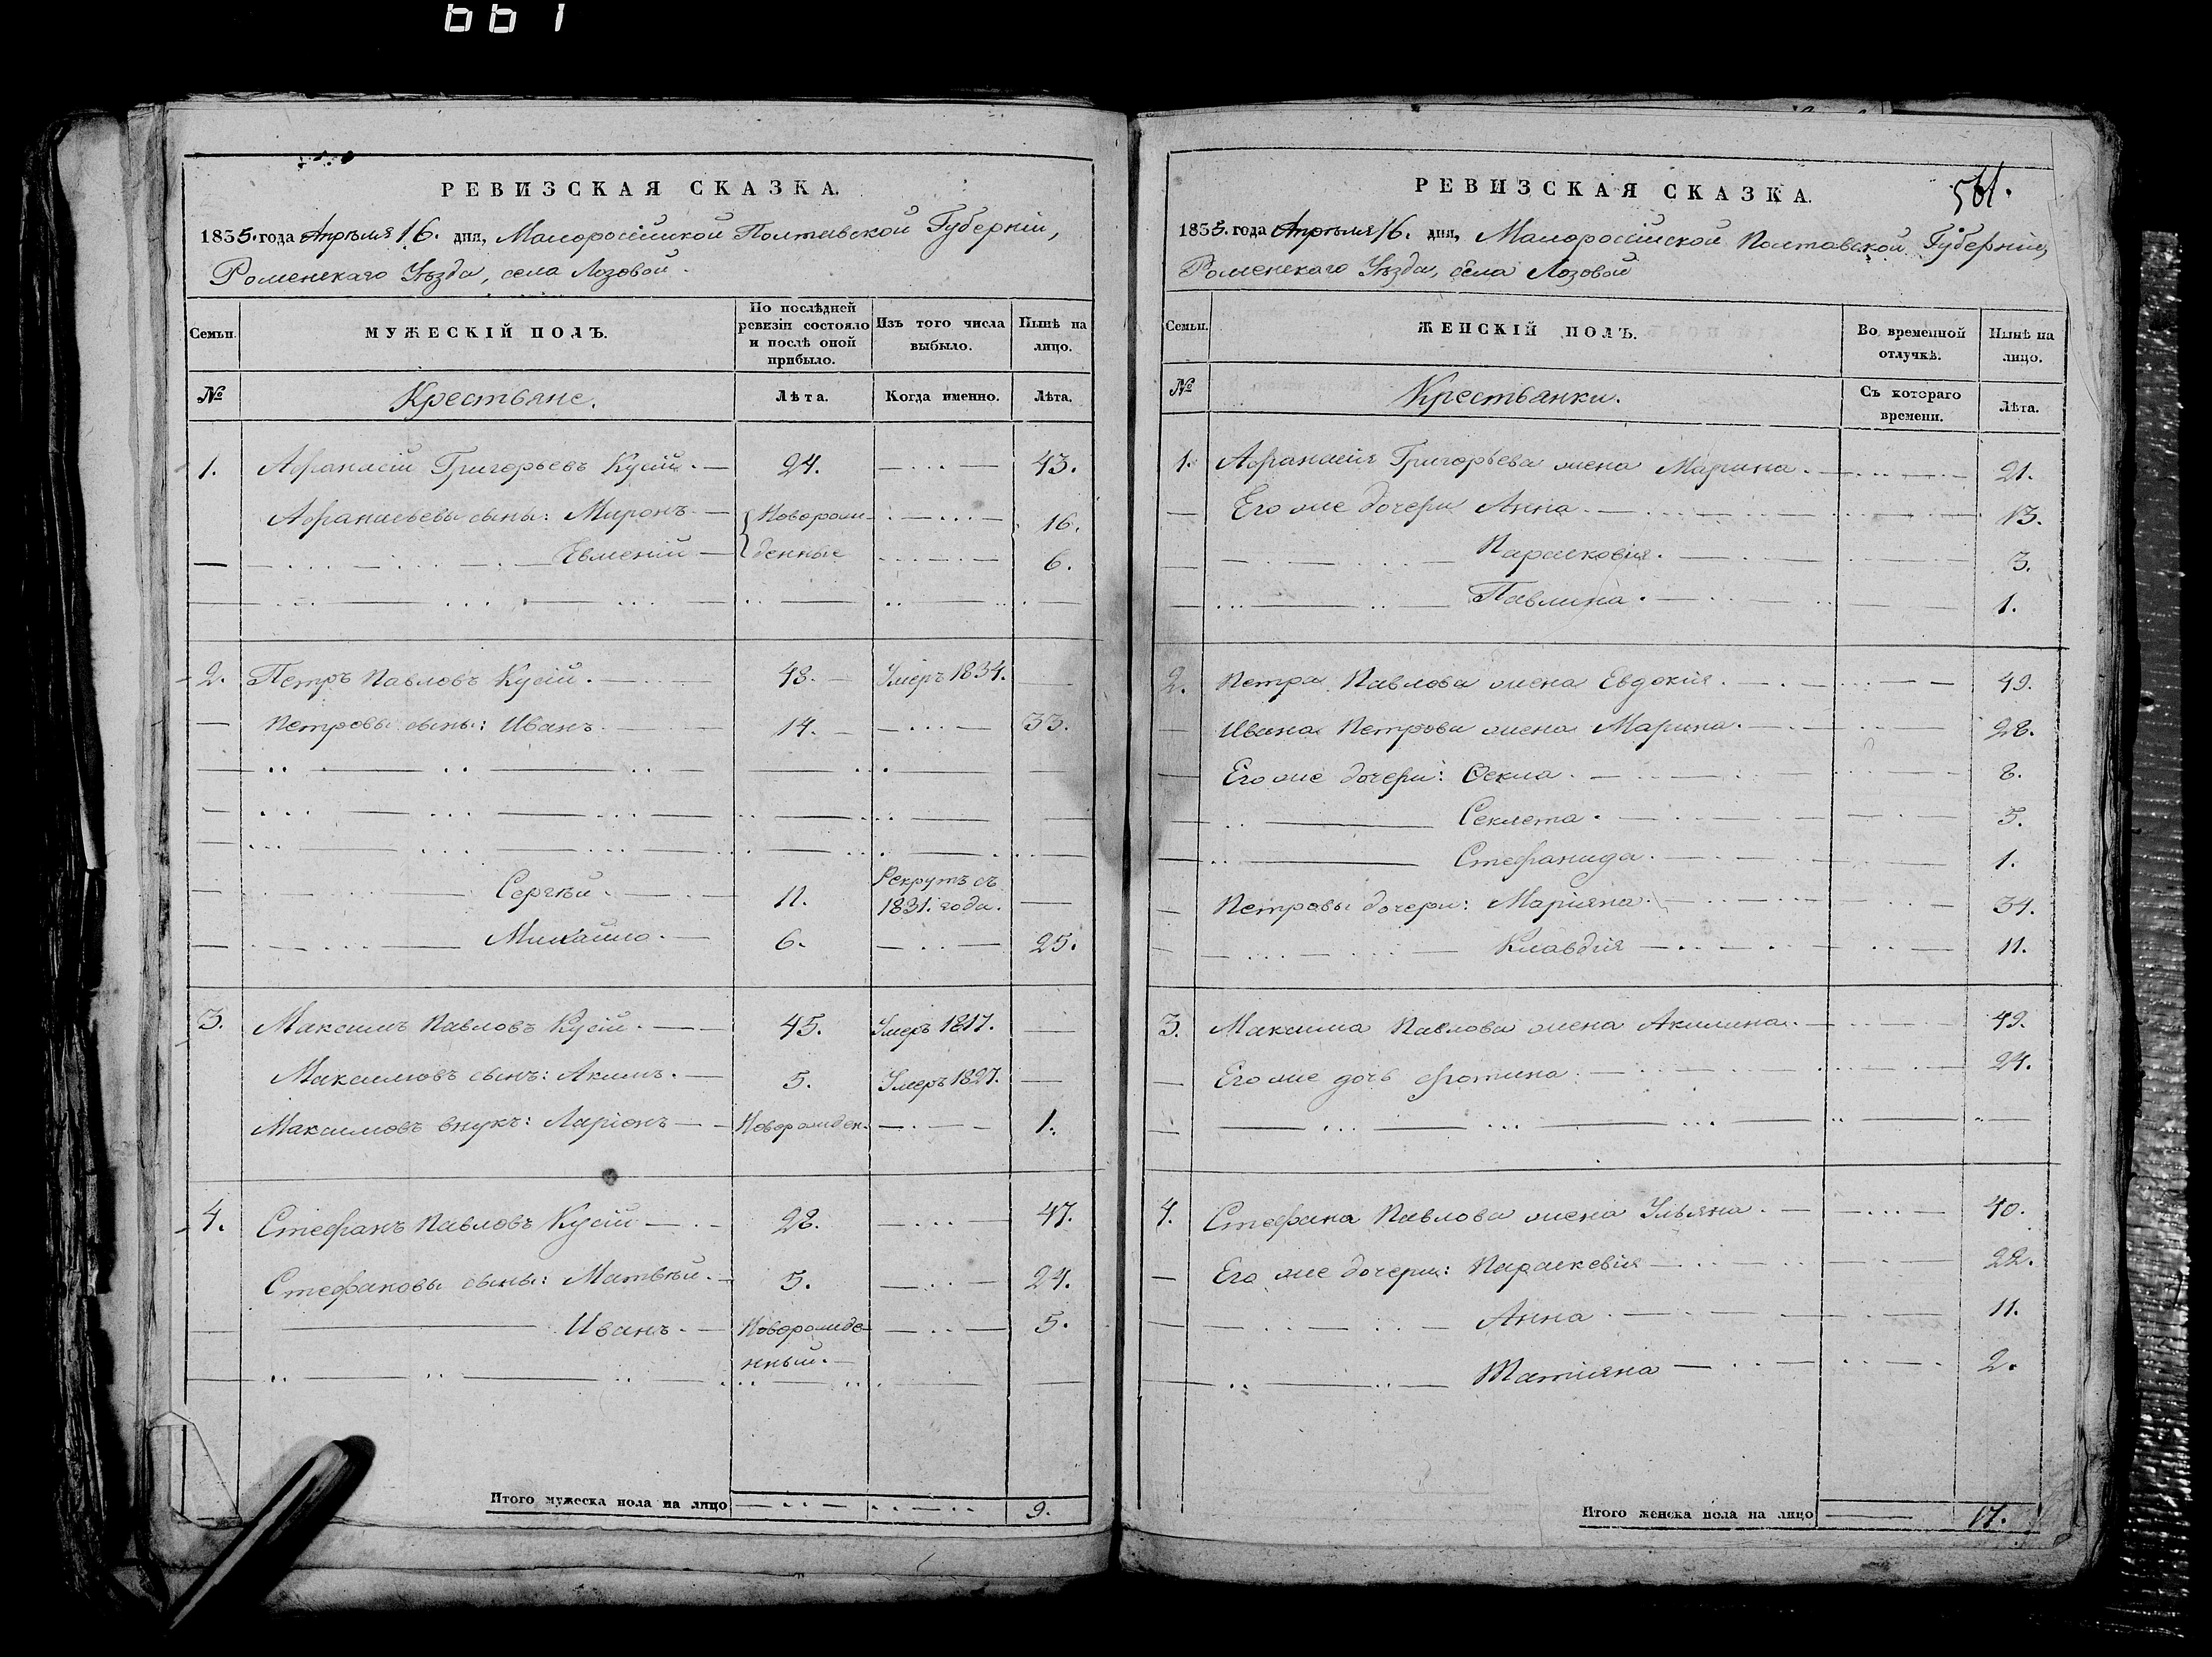 661
РЕВИЗСКАЯ СКАЗКА.
1835. года Апрѣля 16. дня, Малороссійской Полтавской Губерніи,
Роменскаго Уѣзда, села Лозовой.
Семьи. МУЖЕСКІЙ ПОЛЪ. По послѣдней ревизіи состояло и послѣ оной прибыло. Изъ того числа выбыло. Нынѣ на лицо.
№ Крестьяне. Лѣта. Когда именно. Лѣта.
1. Афанасій Григорьевъ Кусій. 24. 43.
Афанасьевы сыны: Миронъ. Новорож- 16.
Евменій денные 6.
2. Петръ Павловъ Кусій. 48. Умеръ 1834.
Петровы сыны: Иванъ. 14. 33.
Сергѣй. 11. Рекрутъ съ 1831. года.
Михайло. 6. 25.
3. Максимъ Павловъ Кусій. 45. Умеръ 1817.
Максимовъ сынъ: Акимъ. 5. Умеръ 1827.
Максимовъ внукъ: Ларіонъ Новорожден. 1.
4. Стефанъ Павловъ Кусій 28. 47.
Стефановы сыны: Матвѣй. 5. 24.
Иванъ. Новорожде- 5.
нный.
Итого мужеска пола на лицо 9.
РЕВИЗСКАЯ СКАЗКА. 561.
1835. года Апрѣля 16. дня, Малороссійской Полтавской Губерніи,
Роменскаго Уѣзда, села Лозовой
Семьи. ЖЕНСКІЙ ПОЛЪ. Во временной отлучкѣ. Нынѣ на лицо.
№ Крестьянки. Съ котораго времени. Лѣта.
1. Афанасія Григорьева жена Марина. 21.
Его же дочери Анна. 13.
Парасковія. 3.
Павлина. 1.
2. Петра Павлова жена Евдокія. 49.
Ивана Петрова жена Марина. 28.
Его же дочери: Ѳекла. 8.
Секлета. 5.
Стефанида. 1.
Петровы дочери: Маріяна. 34.
Клавдія 11.
3. Максима Павлова жена Акилина. 49.
Его же дочь Фотина. 24.
4. Стефана Павлова жена Ульяна. 40.
Его же дочери: Параскевія 22.
Анна. 11.
Татіяна 2.
Итого женска пола на лицо 17.